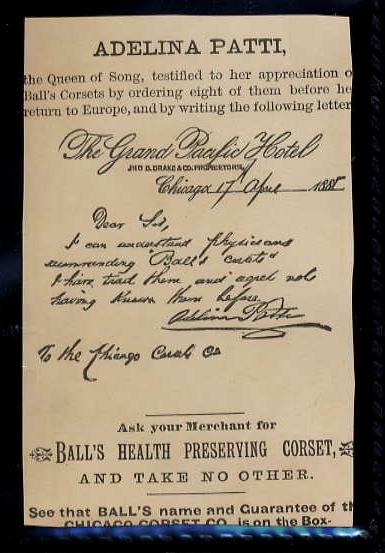 ADELINA PATTI,
the Queen of Song, testified to her appreciation o
Ball's Corsets by ordering eight of them before he
return to Europe, and by writing the following letter
The Grand Pacific Hotel
JNO B. DRAKE & CO. PROPRIETORS.
Chicago 17 April
Dear Sir,
I can understand physicians
Ball's
I have tried them and not
having known them before.
Adelina Patti
To the Chicago Co
Ask your Merchant for
BALL'S HEALTH PRESERVING CORSET,
AND TAKE NO OTHER.
See that BALL'S name and Guarantee of th
CHICAGO CORSET CO. is on the Box-